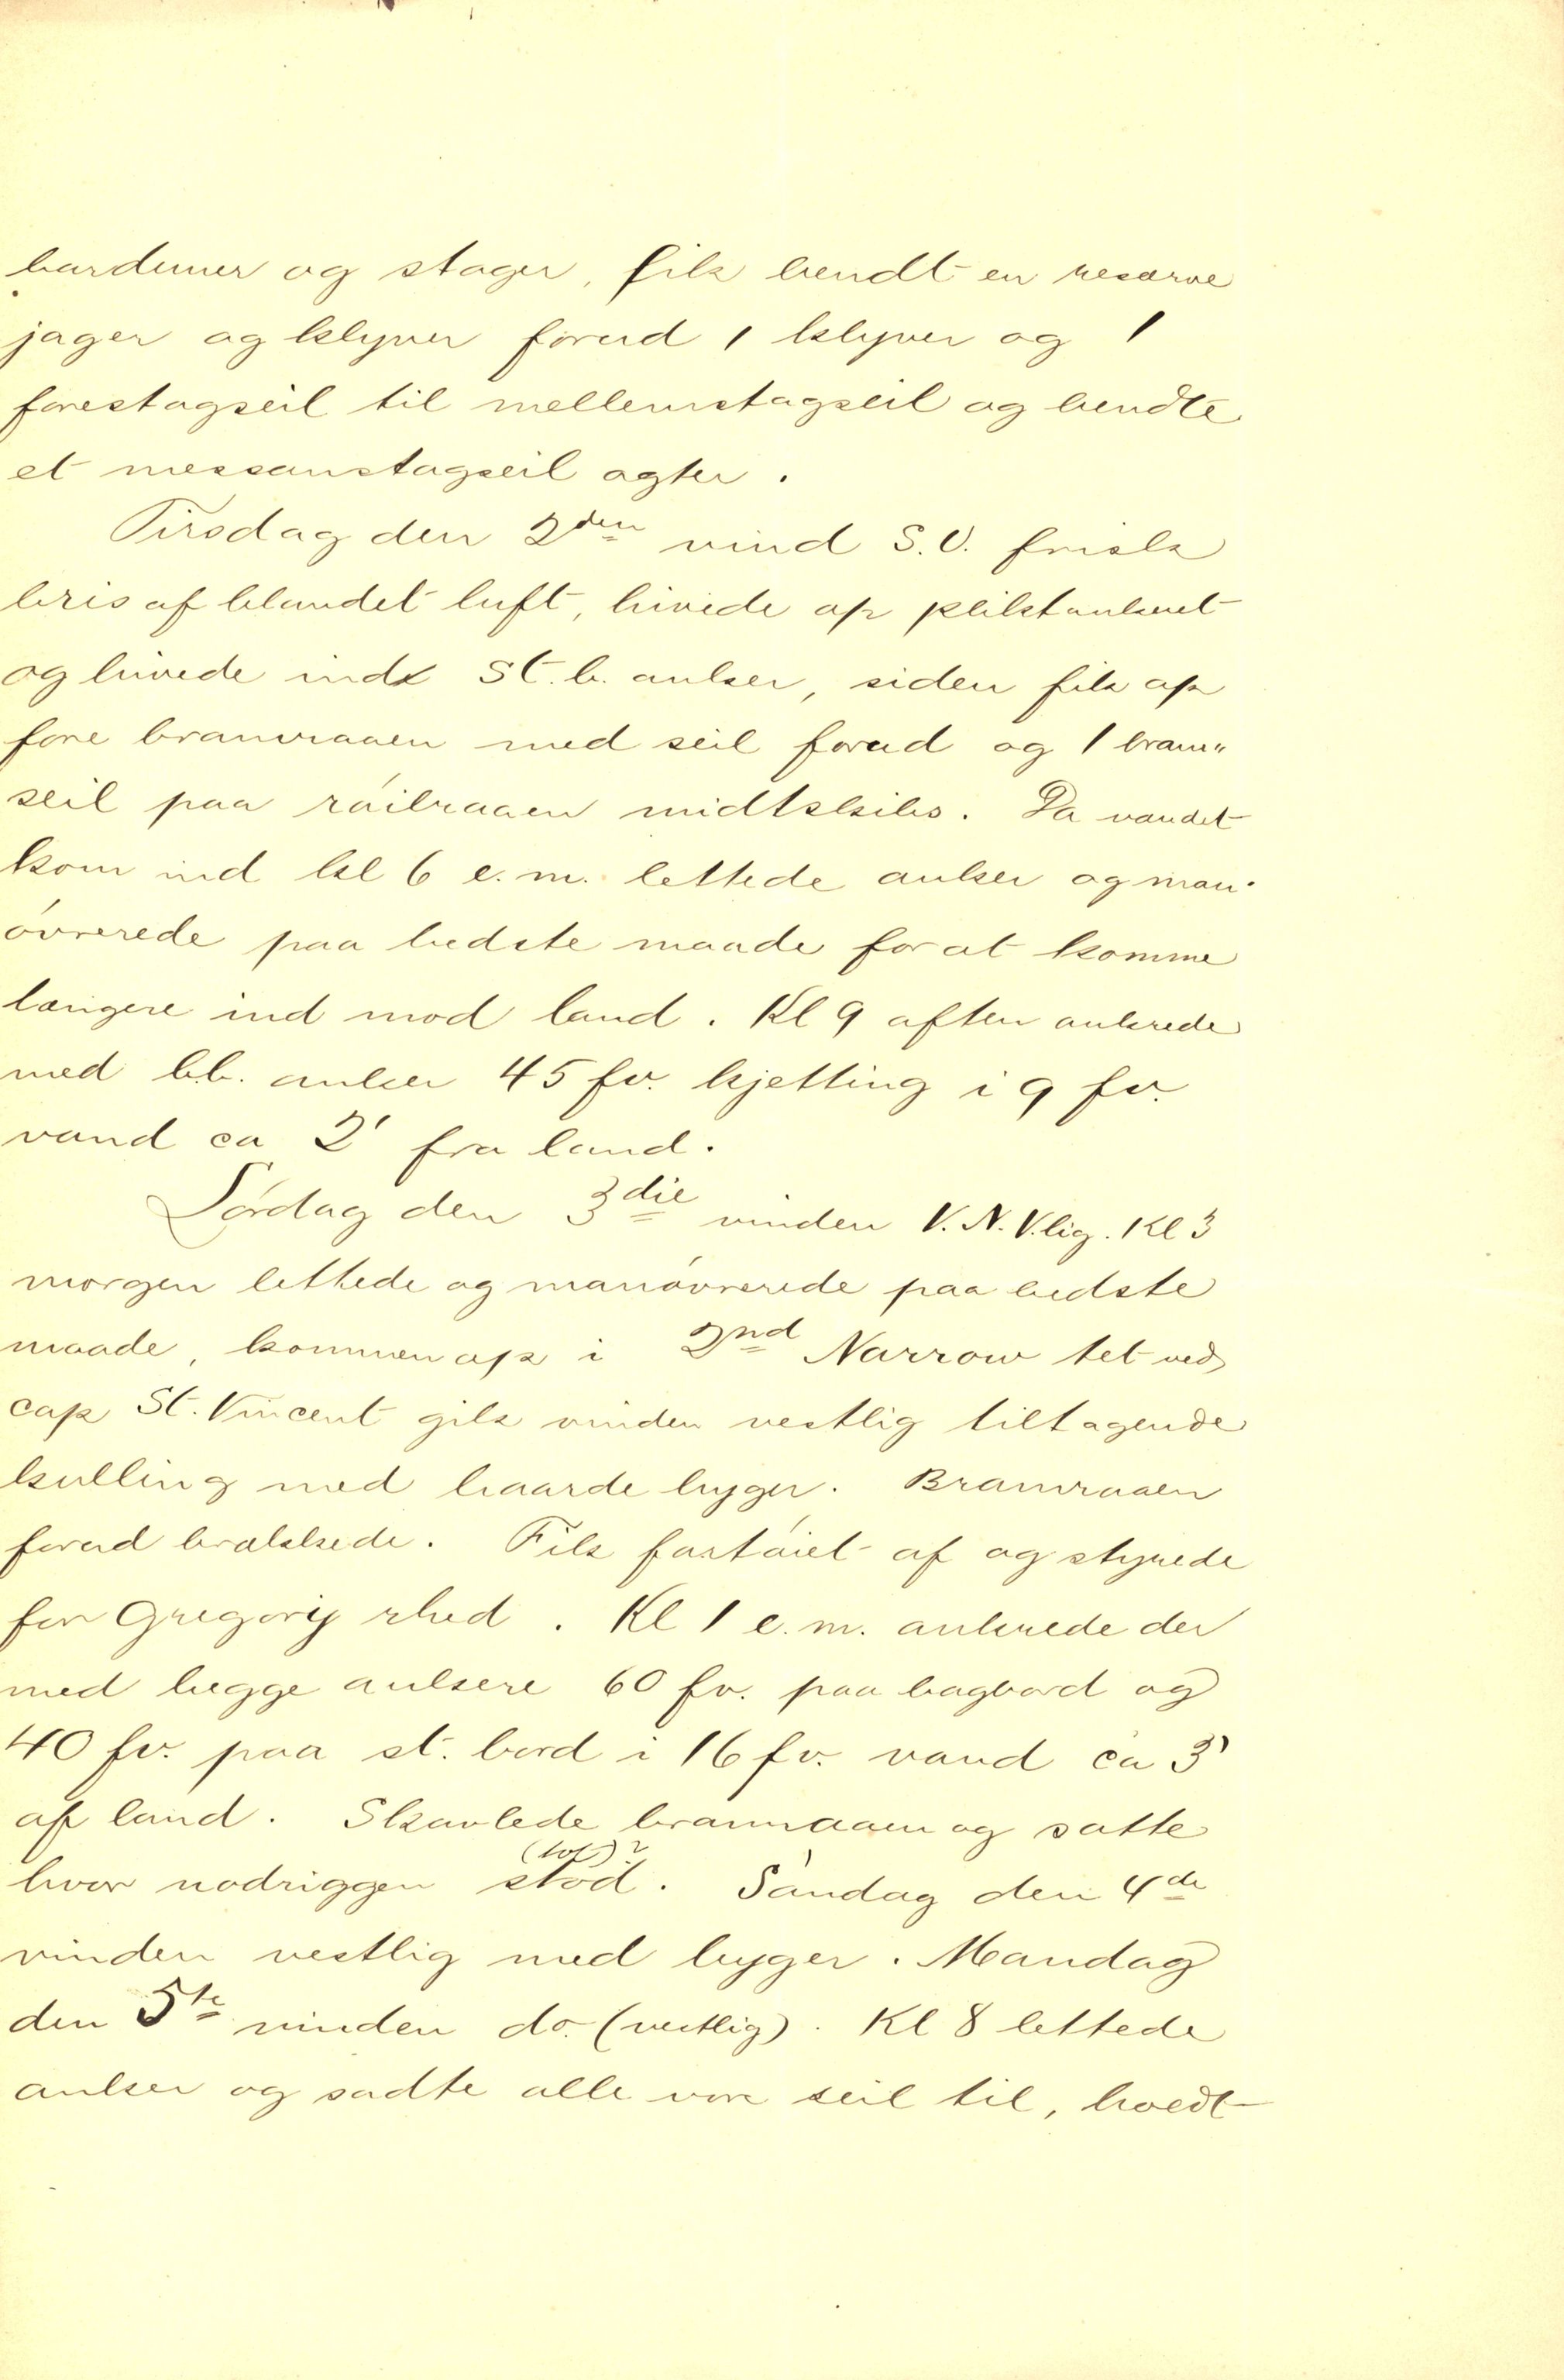 barduner og stager, fik bendt en reserve
jager og klyver forud 1 klyver og 1
forestagseil til mellemstagseil og bendte
et messanstagseil agter.
Tirsdag den 2den vind S.O. frisk
bris af blandet luft, hivede op pliktankeret
og hivede ind St.b. anker, siden fik op
fore bramraaen med seil forud og 1 bram"
seil paa röilraaen midtskibs. Da vandet
kom ind kl 6 e.m. lettede anker og man-
övrerede paa bedste maade for at komme
længere ind mod land. Kl 9 aften ankrede
med b.b. anker 45 fv. kjetting i 9 fv.
vand ca 2' fra land.
Lördag den 3die vinden V.N.V.lig. Kl 3
morgen lettede og manövrerede paa bedste
maade, kommen op i 2nd Narrow tet ved
cap St. Vincent gik vinden vestlig tiltagende
kulling med haarde byger. Bramraaen
forud brækkede. Fik fartöiet af og styrede
for Gregory rhed. Kl 1 e.m. ankrede der
med begge ankere 60 fv. paa bagbord og
40 fv. paa st. bord i 16 fv. vand ca 3'
af land. Skavlede bramraaen og satte
(tot)?
hvor nodriggen stod. Söndag den 4de
vinden vestlig med byger. Mandag
den 5te vinden do. (vestlig). Kl 8 lettede
anker og sadte alle vore seil til, hvidt